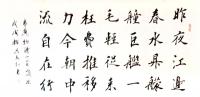 昨夜江邊
春水生艨
艟巨艦一
毛輕向來
枉費推移
力今朝中
流自在行